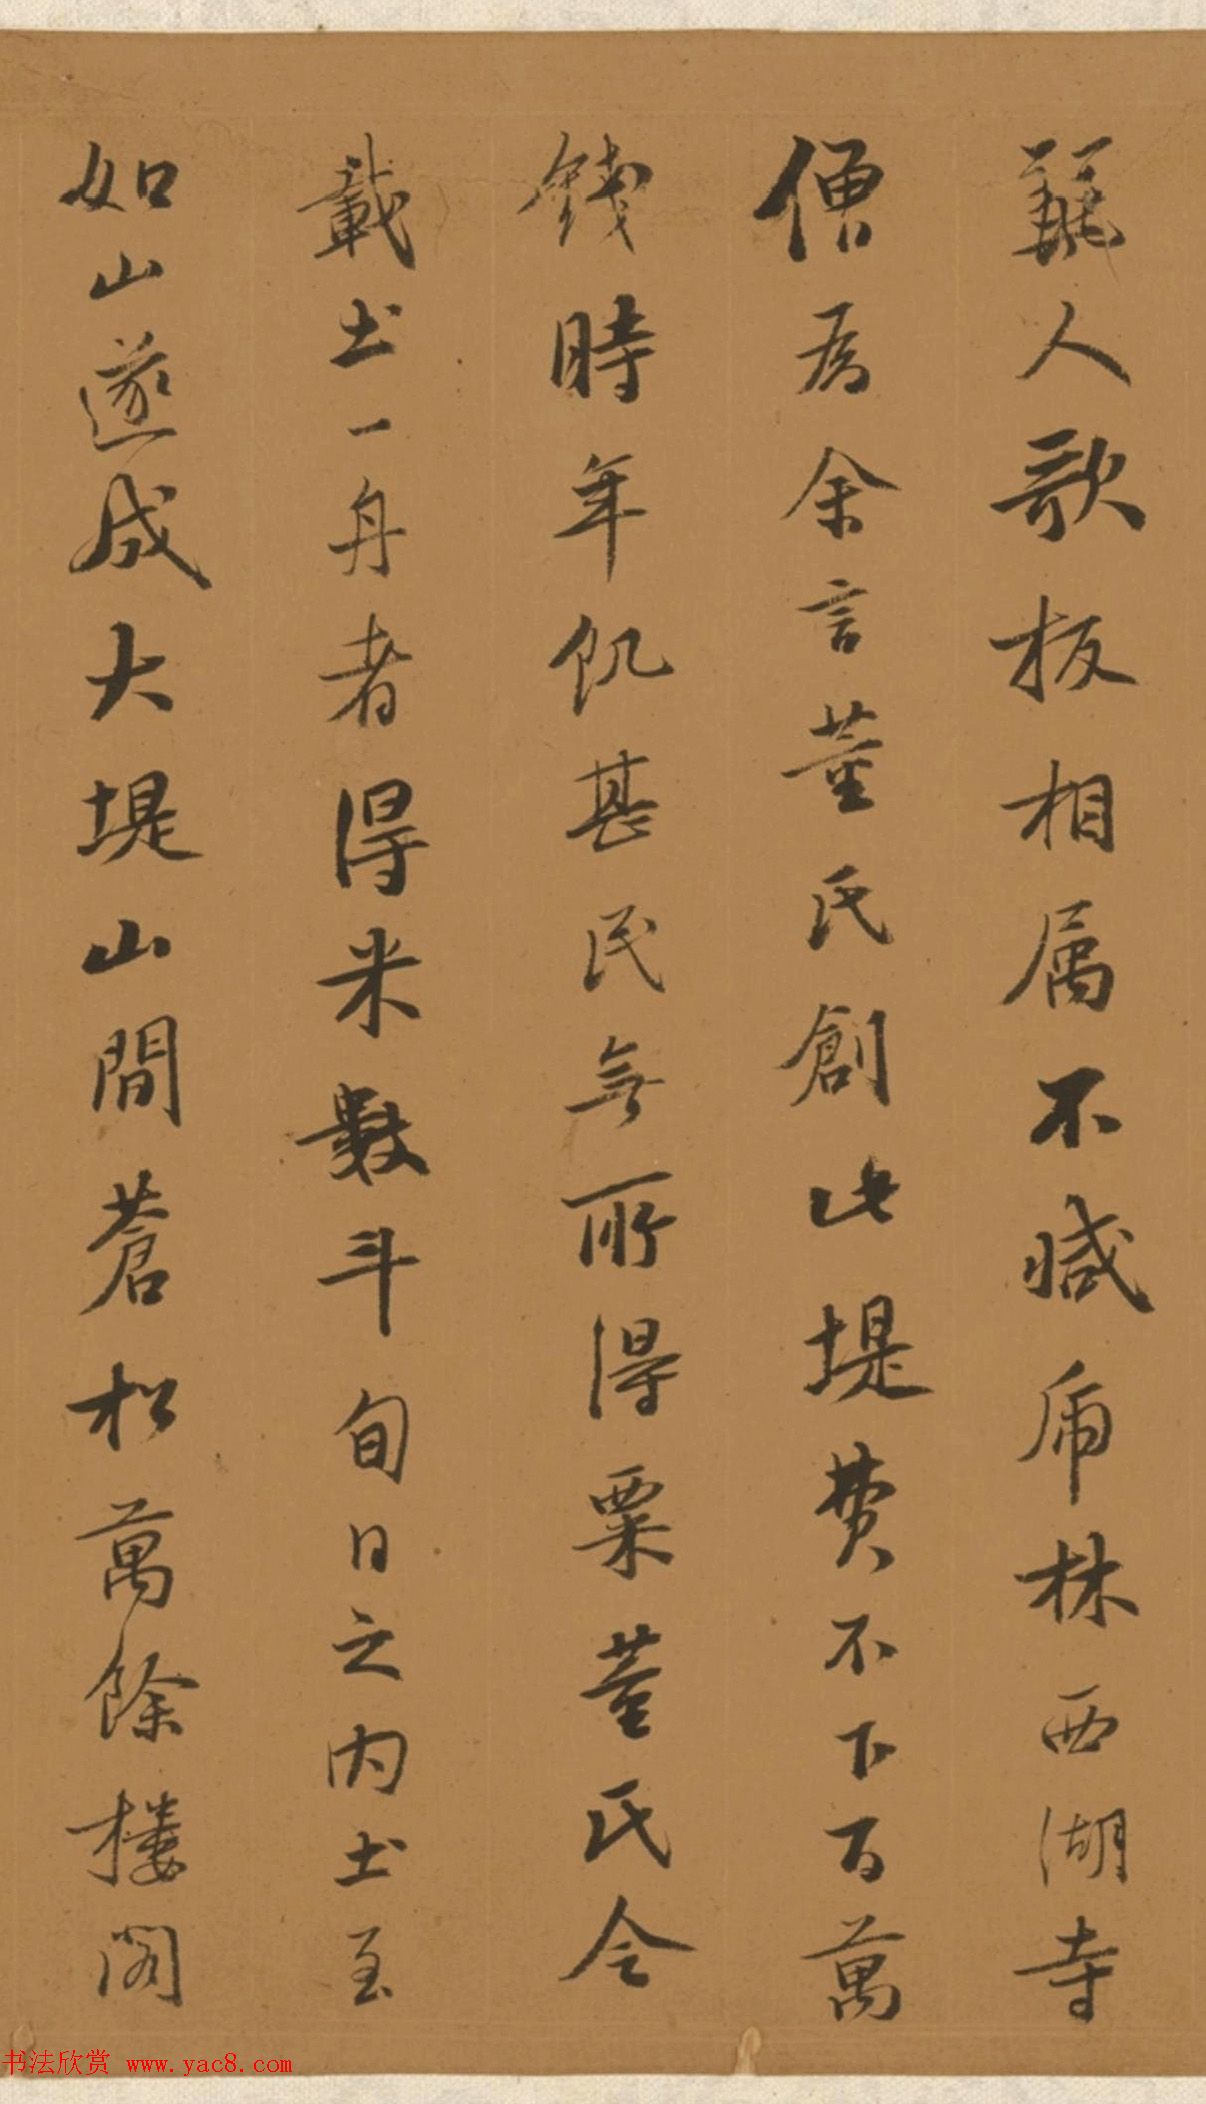 麗人歌板相属不減虎林西湖寺
僧為余言董氏創此堤費不下百萬
錢時年飢甚民無所得粟董氏令
載土一舟者得米數斗旬日之內土至
如山遂成大堤山間蒼松萬餘樓閣
书法欣赏 www.yac8.com